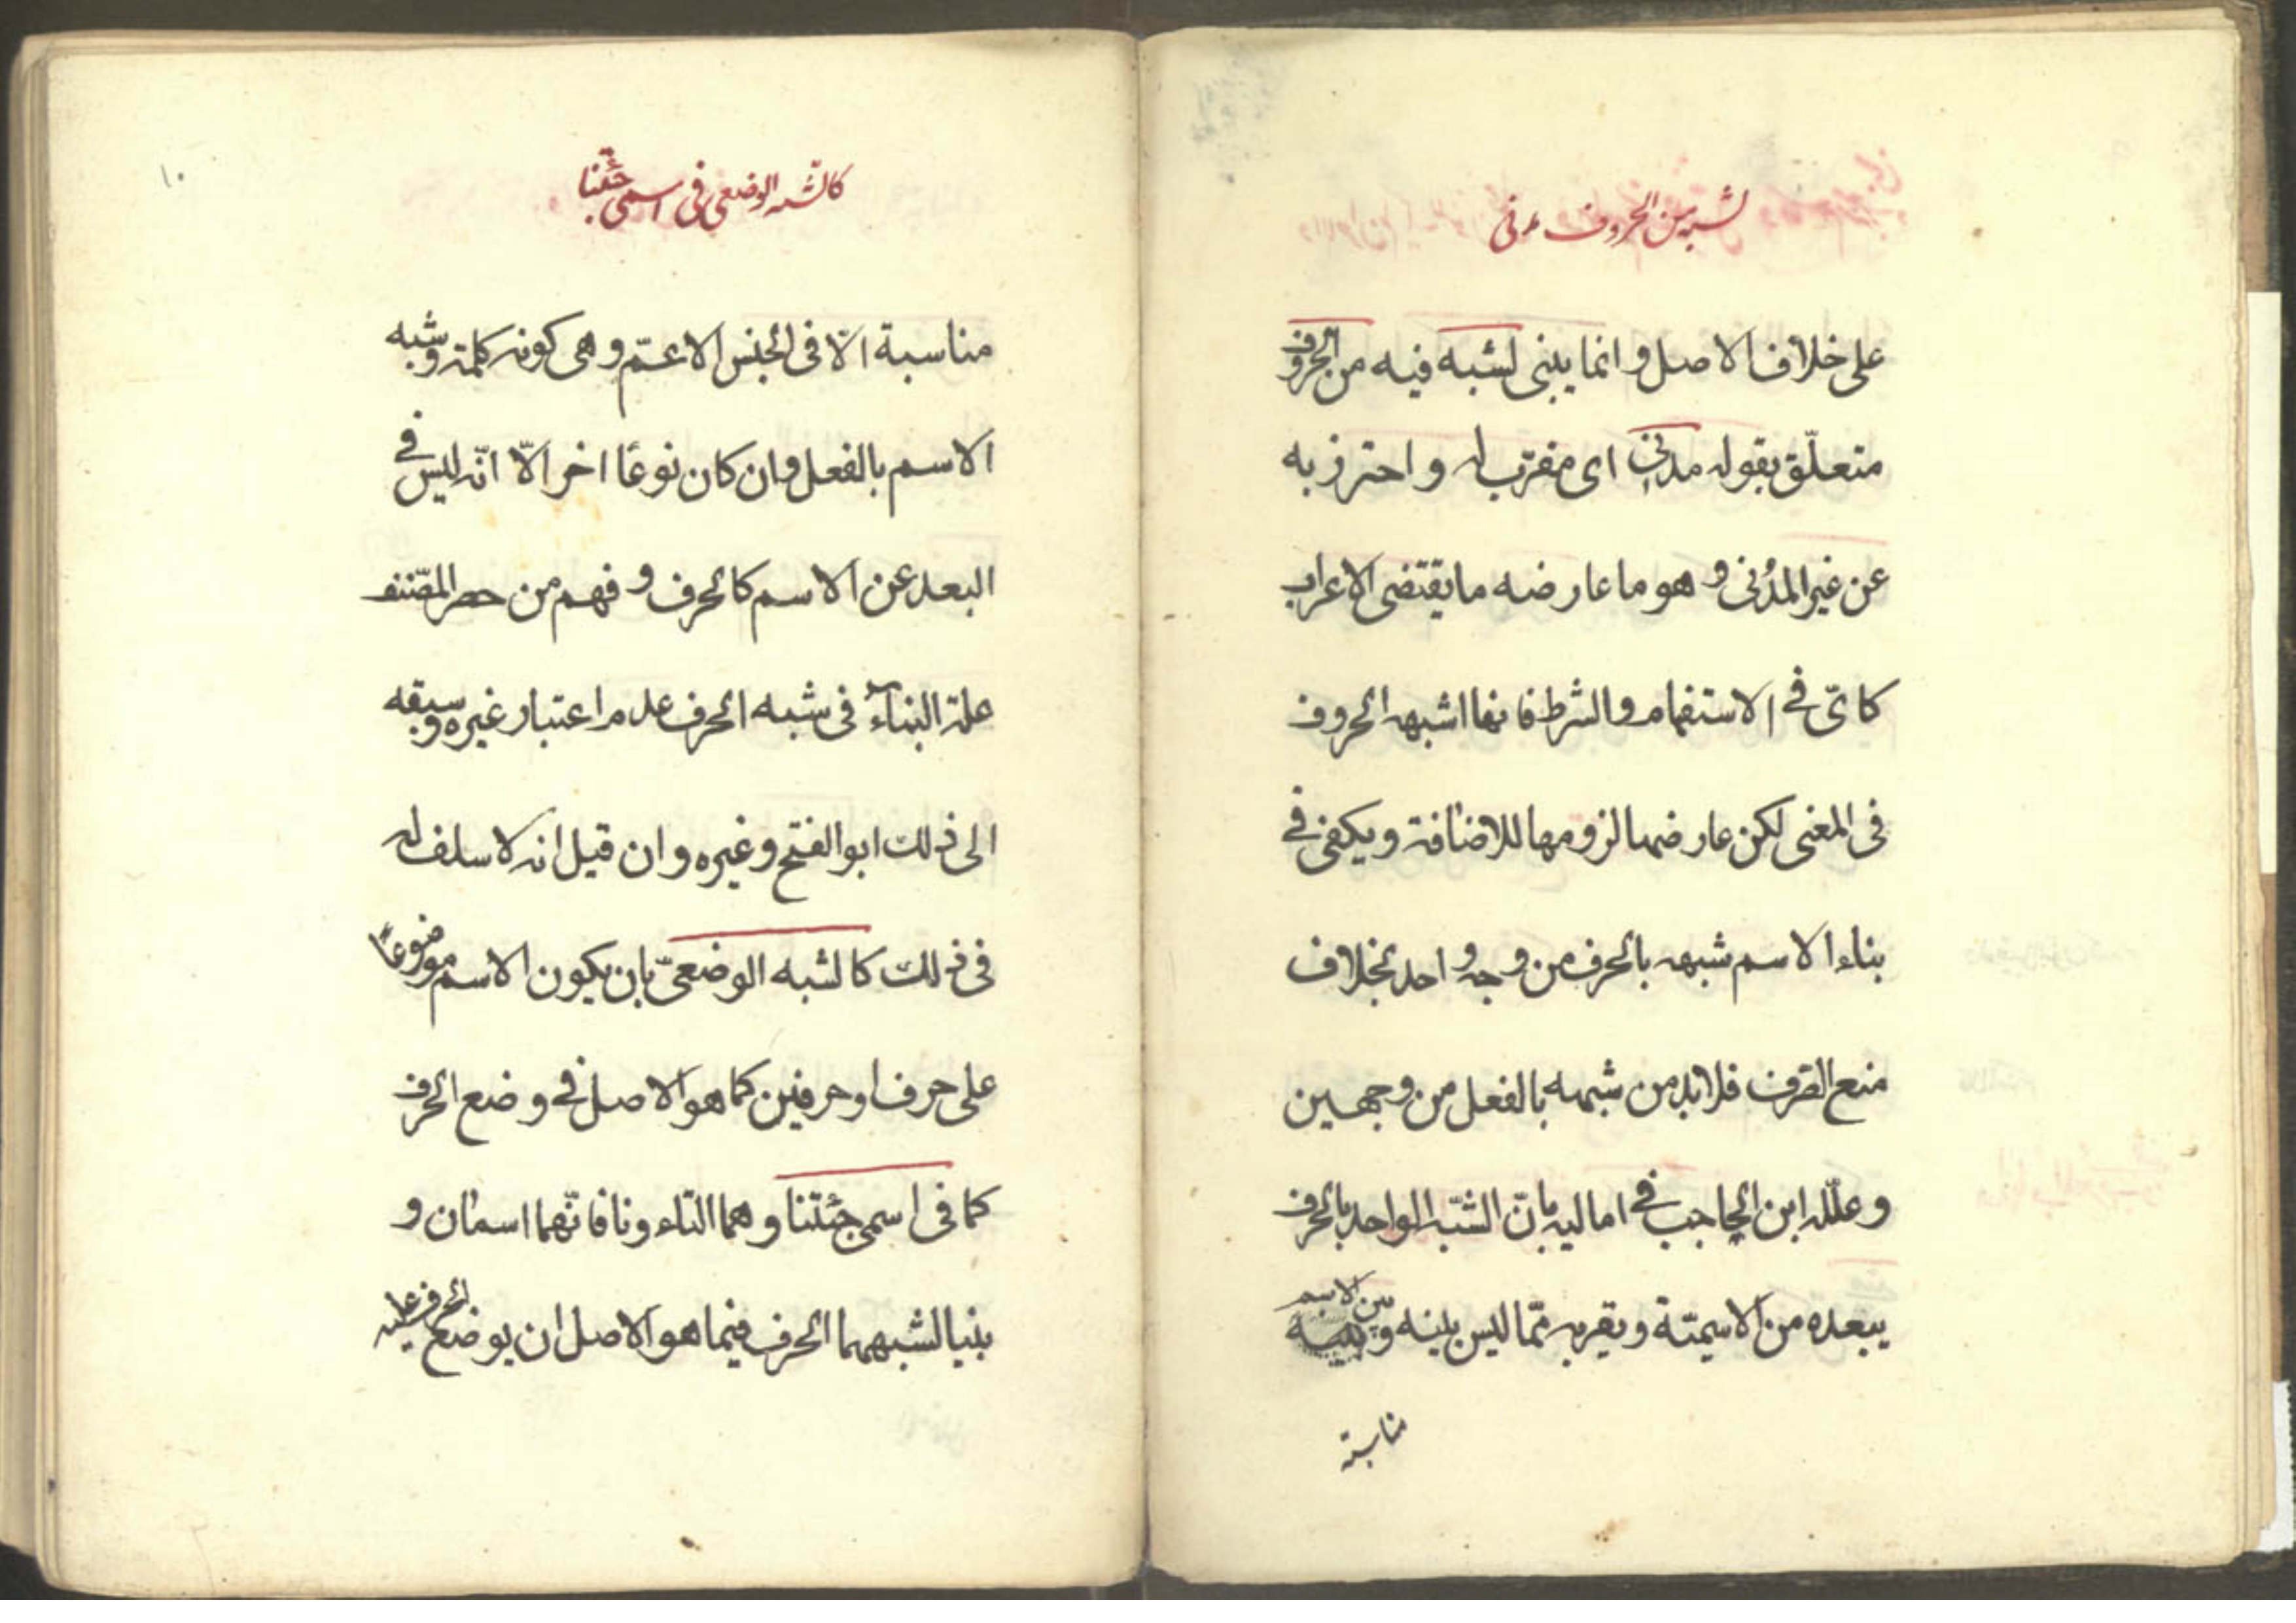 لشبه من الحروف مدنى
على خلاف الاصل وانما يبنى لشبه فيه من الحروف
متعلّق بقوله مدنى اى مقرّب له واحترز به
عن غير المدنى وهو ما عارضه ما يقتضى الاعراب
كاىّ فى الاستفهام والشرط فانها اشبهه الحروف
فى المعنى لكن عارضها لزومها للاضافة ويكفى فى
بناء الاسم شبهه بالحرف من وجه واحد بخلاف
منع الصرف فلابد من شبهه بالفعل من وجهين
وعلّله ابن الحاجب فى اماليه بانّ الشبه الواحد بالحرف
يبعده من الاسميّة ويقربه ممّا ليس بينه وبين الاسم
مناسبة
١٠
كالشبه الوضعى فى اسمى جئتنا
مناسبة الّا فى الجنس الاعمّ وهى كونه كلمة وشبه
الاسم بالفعل وان كان نوعًا اخر الّا انّه ليس فى
البعد عن الاسم كالحرف وفهم من حصر المصّنف
علة البناء فى شبه الحرف عدم اعتبار غيره وسبقه
الى ذلك ابو الفتح وغيره وان قيل انه لا سلف له
فى ذلك كالشبه الوضعىّ بان يكون الاسم موضوعًا
على حرف او حرفين كما هو الاصل فى وضع الحرف
كما فى اسمى جئتنا وهما التاء ونا فانّهما اسمان و
بنيا لشبههما الحرف فيما هو الاصل ان يوضع الحرف عليه